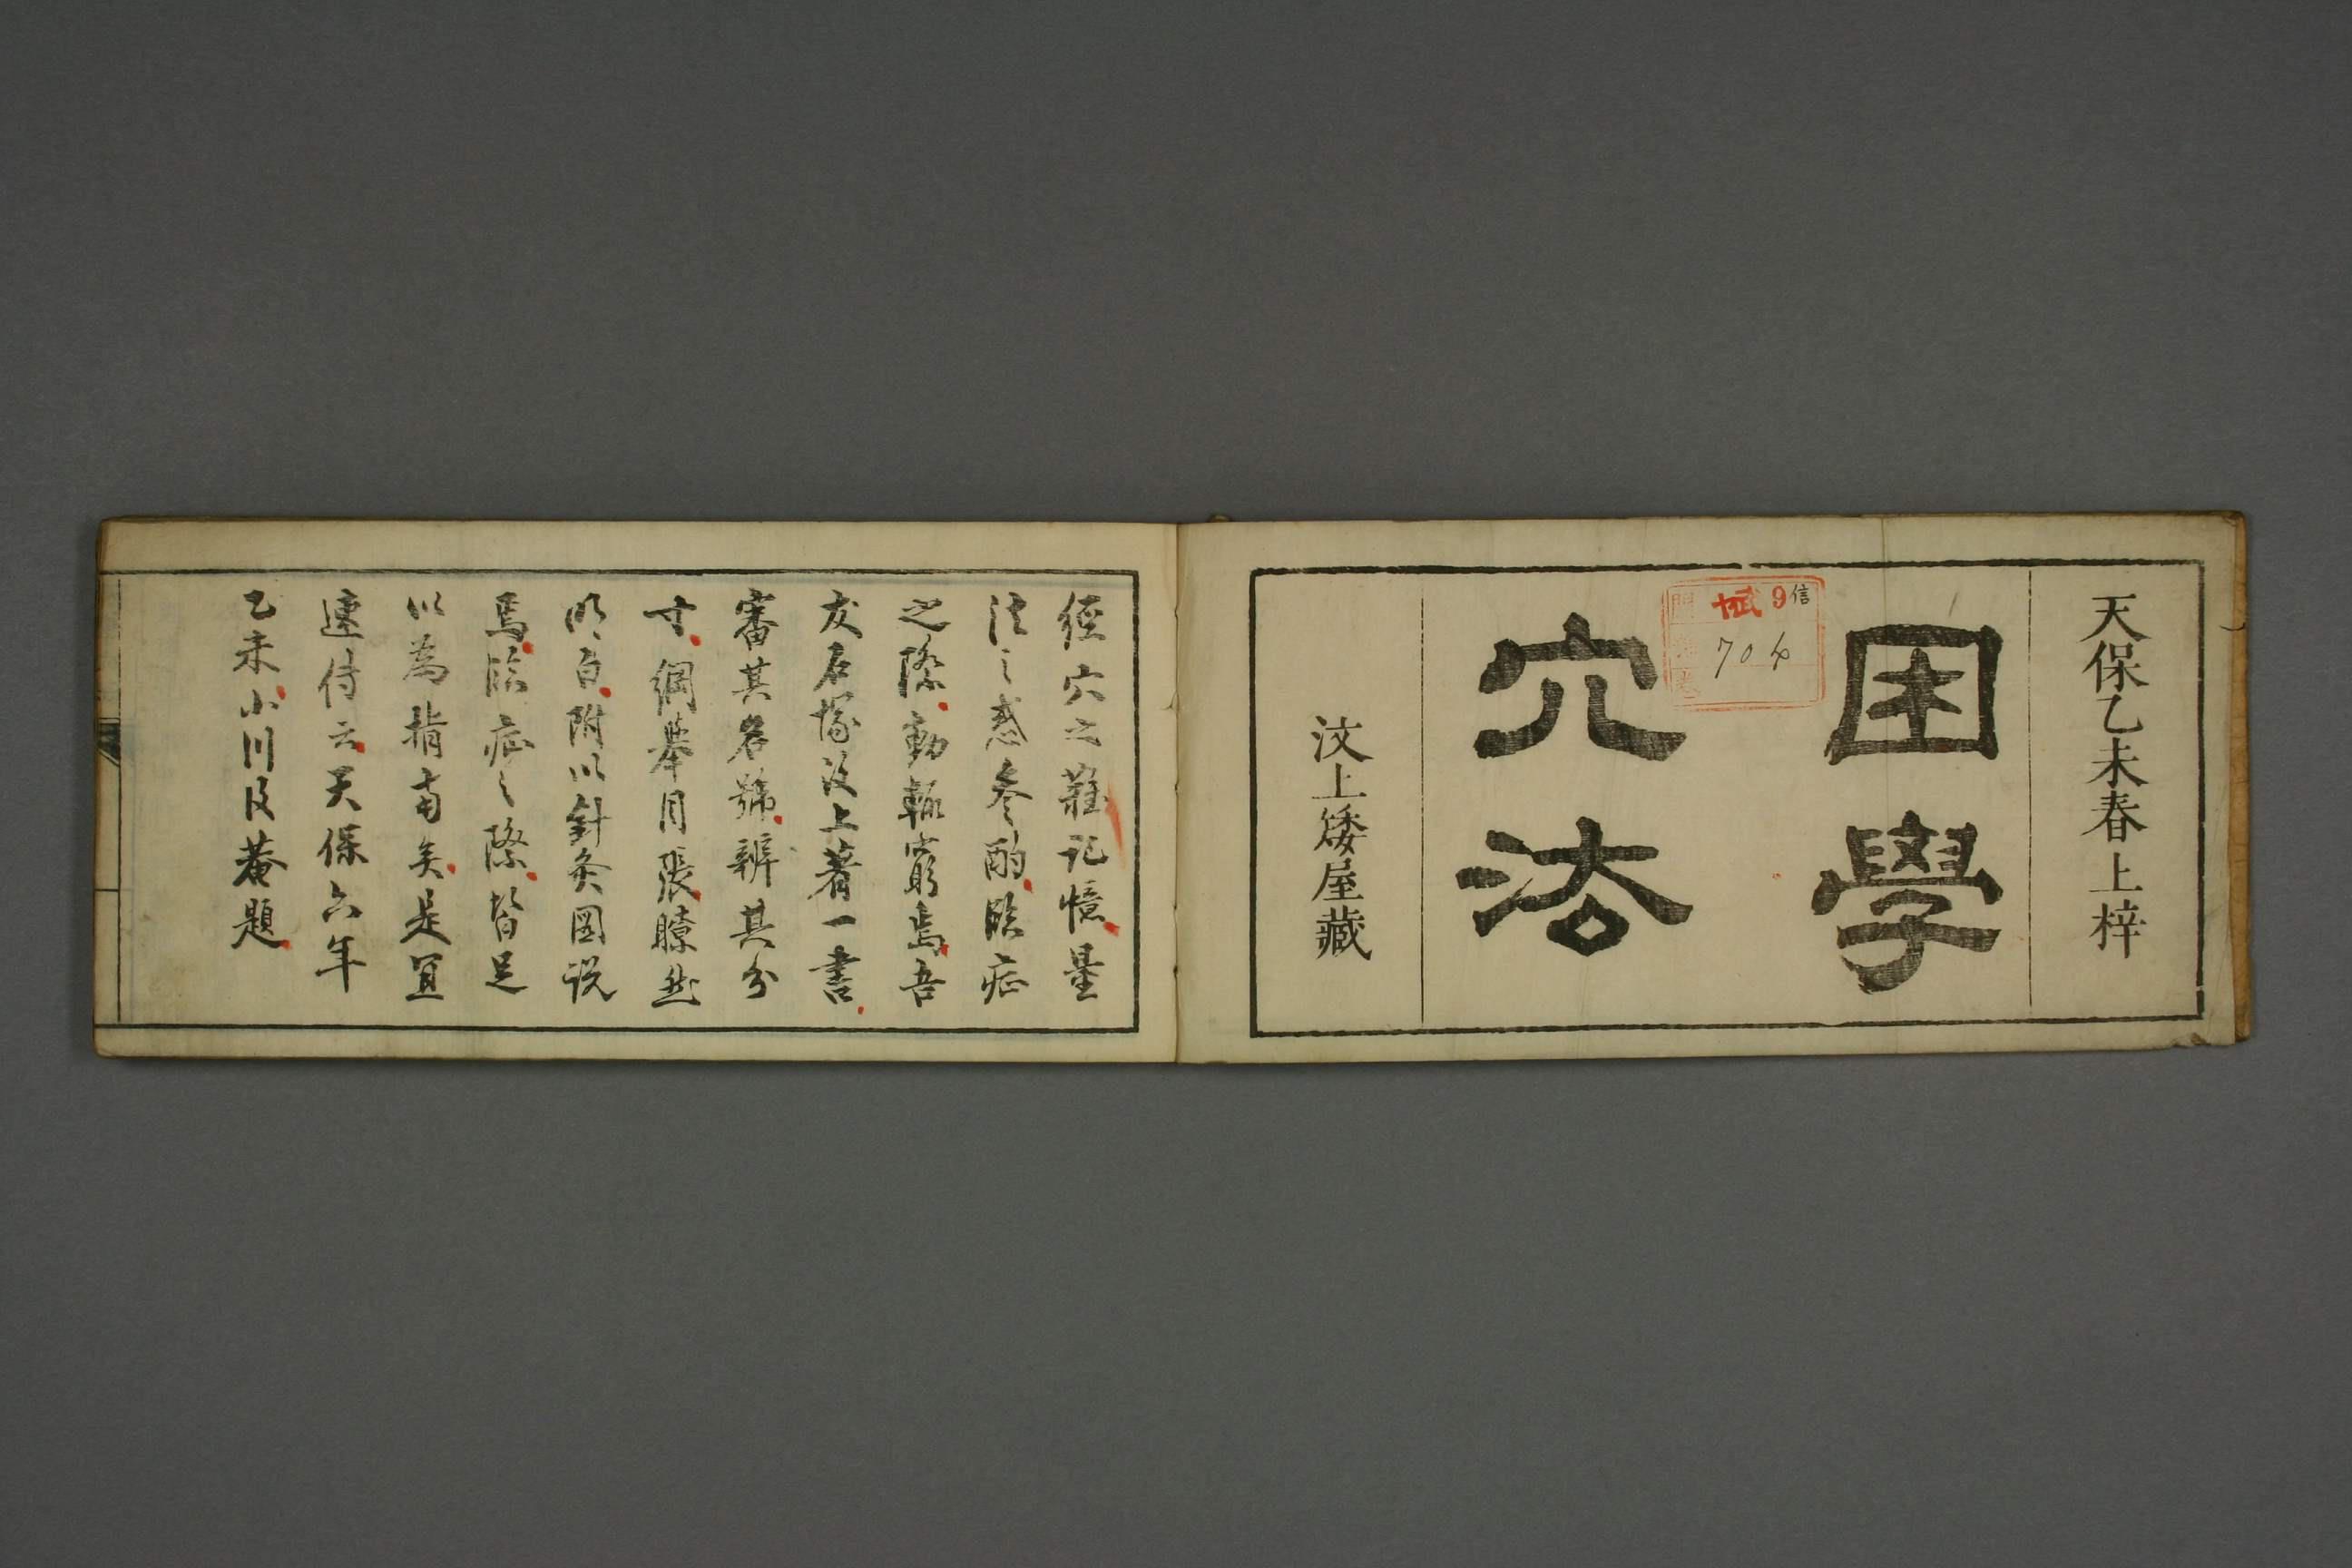 天保乙未春上梓
困學
穴法
汶上矮屋藏
信
9
704
經穴之難記憶量
注之惑參酌臨症
之際動輙窮焉吾
友石塚汶上著一書
審其名號辨其分
寸綱擧目張瞭然
明白附以針灸圖説
焉臨症之際皆足
以為指南矣是宜
速付云天保六年
乙未小川汶菴題